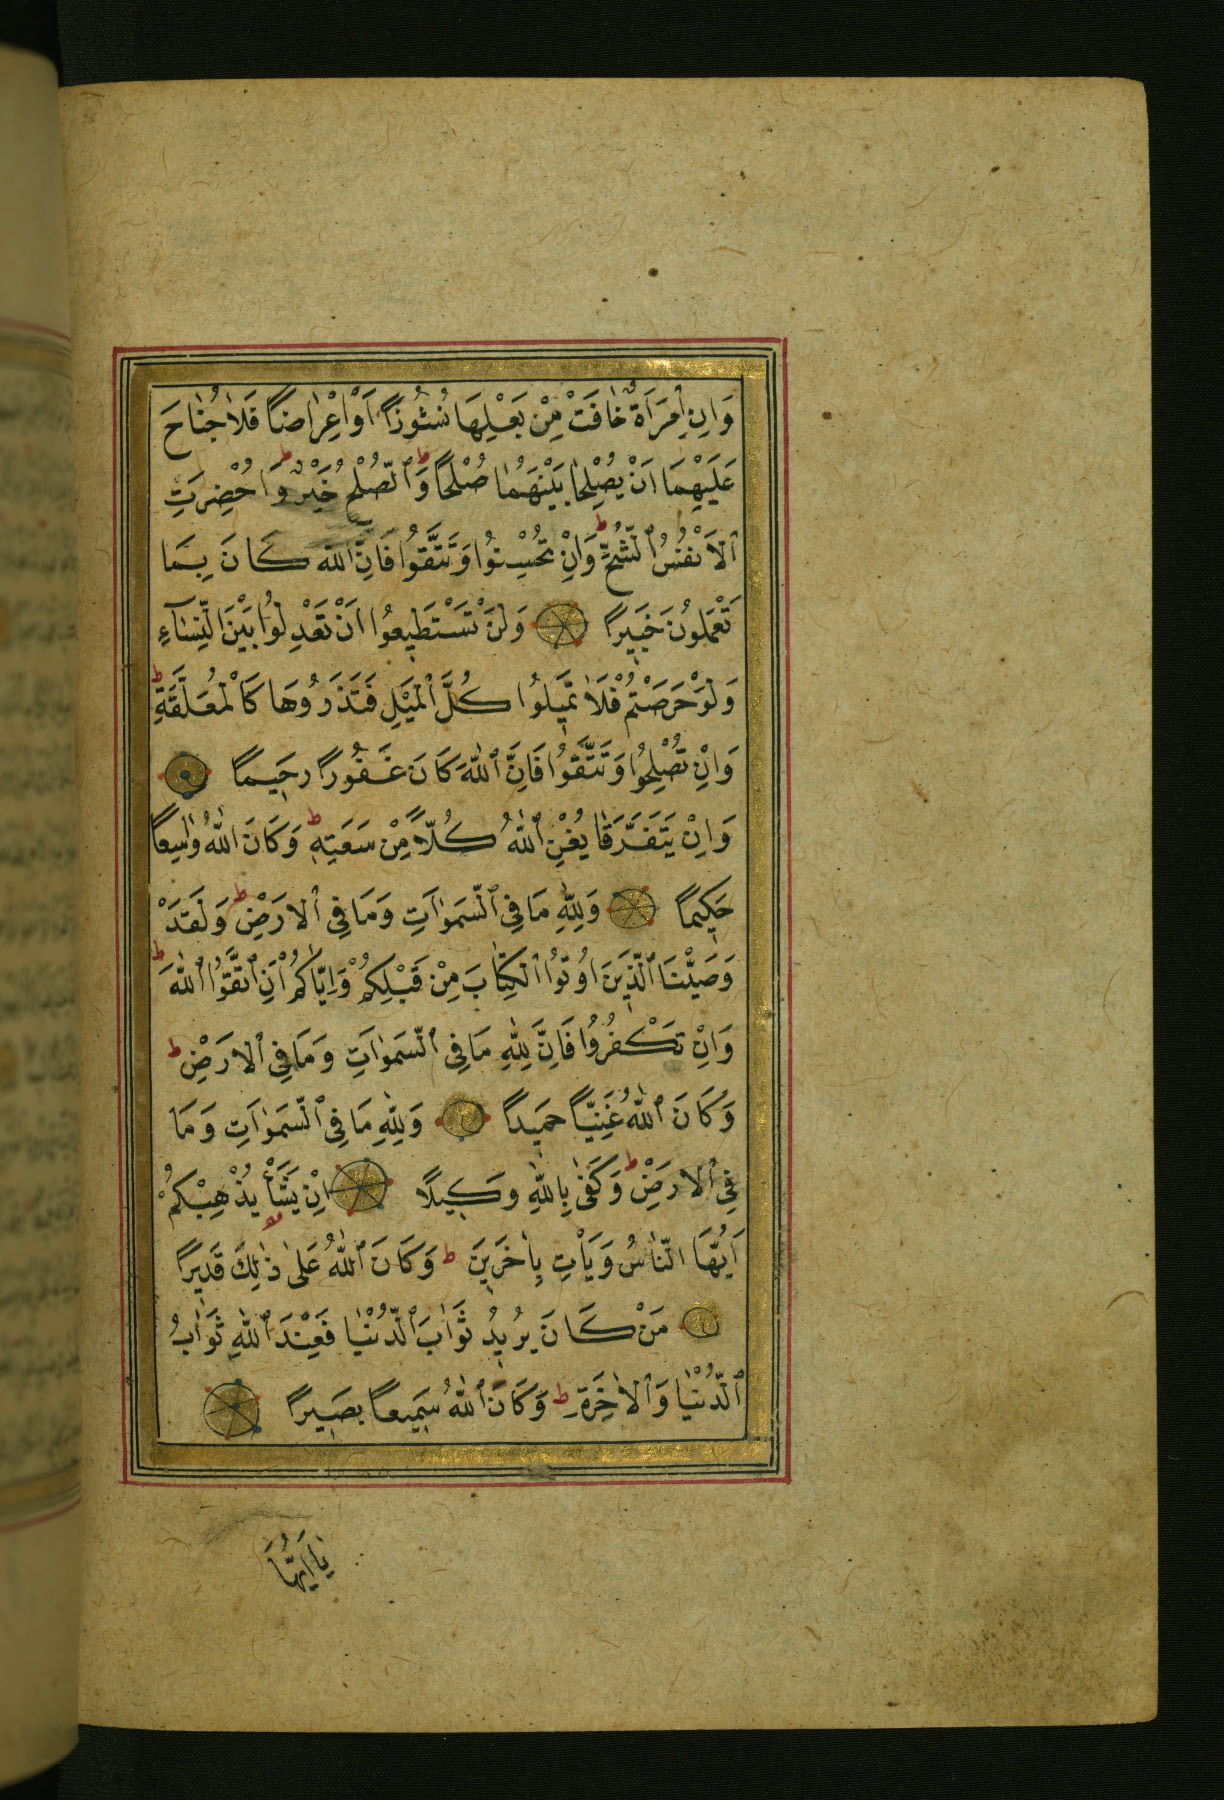 وَاِنِ امْرَاَةٌ خَافَتْ مِنْ بَعْلِهَا نُشُوزًا اَوْ اِعْرَاضًا فَلَا جُنَاحَ
عَلَيْهِمَا اَنْ يُصْلِحَا بَيْنَهُمَا صُلْحًا ط وَالصُّلْحُ خَيْرٌ ط وَاُحْضِرَتِ
الْاَنْفُسُ الشُّحَّ ط وَاِنْ تُحْسِنُوا وَتَتَّقُوا فَاِنَّ اللهَ كَانَ بِمَا
تَعْمَلُونَ خَبِيرًا وَلَنْ تَسْتَطِيعُوا اَنْ تَعْدِلُوا بَيْنَ النِّسَاۤءِ
وَلَوْ حَرَصْتُمْ فَلَا تَمِيلُوا كُلَّ الْمَيْلِ فَتَذَرُوهَا كَالْمُعَلَّقَةِ ط
وَاِنْ تُصْلِحُوا وَتَتَّقُوا فَاِنَّ اللهَ كَانَ غَفُورًا رَحِيمًا
وَاِنْ يَتَفَرَّقَا يُغْنِ اللهُ كُلًّا مِنْ سَعَتِهِ ط وَكَانَ اللهُ وَاسِعًا
حَكِيمًا وَلِلّٰهِ مَا فِي السَّمٰوَاتِ وَمَا فِي الْارَضِ ط وَلَقَدْ
وَصَّيْنَا الَّذِينَ اُوتُوا الْكِتَابَ مِنْ قَبْلِكُمْ وَاِيَّاكُمْ اَنِ اتَّقُوا اللهَ ط
وَاِنْ تَكْفُرُوا فَاِنَّ لِلّٰهِ مَا فِي السَّمٰوَاتِ وَمَا فِي الْارَضِ ط
وَكَانَ اللهُ غَنِيًّا حَمِيدًا وَلِلّٰهِ مَا فِي السَّمٰوَاتِ وَمَا
فِي الْارَضِ ط وَكَفٰى بِاللهِ وَكِيلًا اِنْ يَشَأْ يُذْهِبْكُمْ
اَيُّهَا النَّاسُ وَيَأْتِ بِاٰخَرِينَ ط وَكَانَ اللهُ عَلٰى ذٰلِكَ قَدِيرًا
مَنْ كَانَ يُرِيدُ ثَوَابَ الدُّنْيَا فَعِنْدَ اللهِ ثَوَابُ
الدُّنْيَا وَالْاٰخِرَةِ ط وَكَانَ اللهُ سَمِيعًا بَصِيرًا
يَا اَيُّهَا